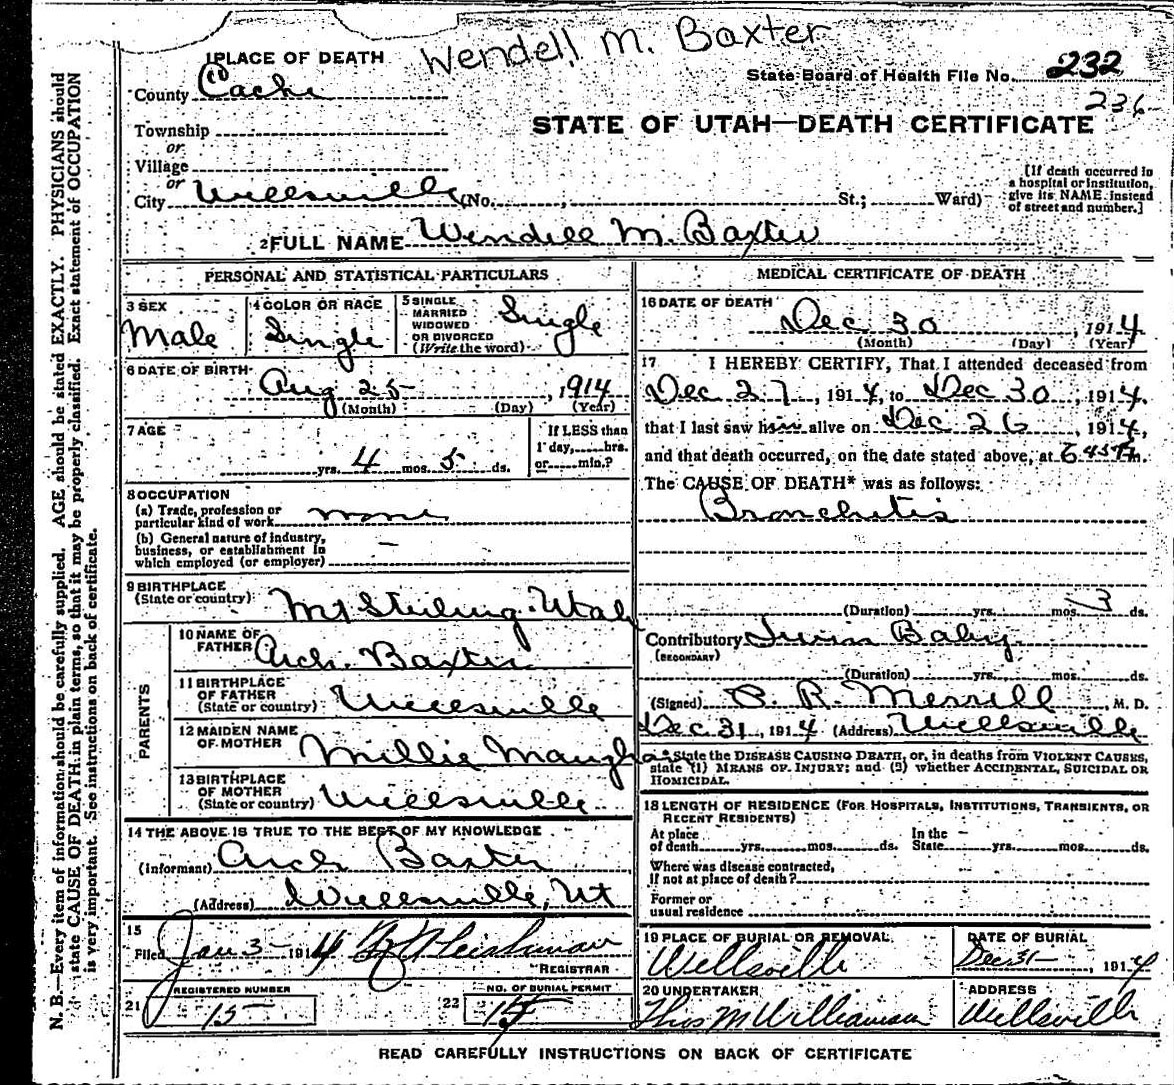 Wendell M. Baxter
1 PLACE OF DEATH
State Board of Health File No. 232
236
County Cache
STATE OF UTAH—DEATH CERTIFICATE
Township
or
Village
or
City Wellsville (No. , St.; Ward)
[If death occurred in
a hospital or institution,
give its NAME instead
of street and number.]
2 FULL NAME Wendell M. Baxter
PERSONAL AND STATISTICAL PARTICULARS
3 SEX
Male
4 COLOR OR RACE
Single
5 SINGLE
MARRIED
WIDOWED
OR DIVORCED
(Write the word)
Single
6 DATE OF BIRTH
Aug 25, 1914
(Month) (Day) (Year)
7 AGE
yrs. 4 mos. 5 ds.
If LESS than
1 day, hrs.
or min.?
8 OCCUPATION
(a) Trade, profession or
particular kind of work none
(b) General nature of industry,
business, or establishment in
which employed (or employer) —
9 BIRTHPLACE
(State or country) Mt Sterling Utah
PARENTS
10 NAME OF
FATHER Arch. Baxter
11 BIRTHPLACE
OF FATHER
(State or country) Wellsville
12 MAIDEN NAME
OF MOTHER Millie Maughan
13 BIRTHPLACE
OF MOTHER
(State or country) Wellsville
14 THE ABOVE IS TRUE TO THE BEST OF MY KNOWLEDGE
(Informant) Arch Baxter
(Address) Wellsville, Ut
15
Filed Jan 3 - 1914 Leishman
REGISTRAR
REGISTERED NUMBER
21 15
NO. OF BURIAL PERMIT
22 15
MEDICAL CERTIFICATE OF DEATH
16 DATE OF DEATH
Dec 30, 1914
(Month) (Day) (Year)
17 I HEREBY CERTIFY, That I attended deceased from
Dec 27, 1914, to Dec 30, 1914,
that I last saw him alive on Dec 26, 1914,
and that death occurred, on the date stated above, at 6 45 m.
The CAUSE OF DEATH* was as follows:
Bronchitis
(Duration) yrs. mos. 3 ds.
Contributory Twin Baby
(SECONDARY)
(Duration) yrs. mos. ds.
(Signed) R. Merrill, M. D.
Dec 31, 1914 (Address) Wellsville
* State the DISEASE CAUSING DEATH, or, in deaths from VIOLENT CAUSES,
state (1) MEANS OF INJURY; and (2) whether ACCIDENTAL, SUICIDAL OR
HOMICIDAL.
18 LENGTH OF RESIDENCE (FOR HOSPITALS, INSTITUTIONS, TRANSIENTS, OR
RECENT RESIDENTS)
At place
of death yrs. mos. ds.
In the
State yrs. mos. ds.
Where was disease contracted,
if not at place of death?
Former or
usual residence
19 PLACE OF BURIAL OR REMOVAL
Wellsville
DATE OF BURIAL
Dec 31 -, 1914
20 UNDERTAKER
Thos M Williamson
ADDRESS
Wellsville
READ CAREFULLY INSTRUCTIONS ON BACK OF CERTIFICATE
N. B.—Every item of information should be carefully supplied. AGE should be stated EXACTLY. PHYSICIANS should
state CAUSE OF DEATH in plain terms, so that it may be properly classified. Exact statement of OCCUPATION
is very important. See instructions on back of certificate.